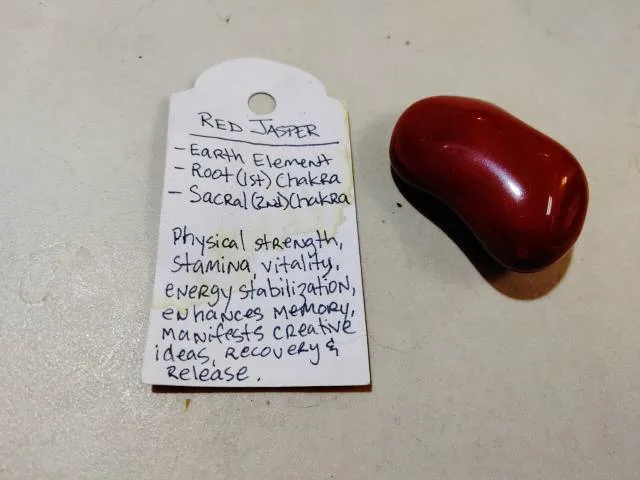 RED JASPER
- Earth Element
- Root (1st) Chakra
- Sacral (2nd) Chakra
Physical strength,
stamina, vitality,
energy stabilization,
enhances memory,
manifests creative
ideas, recovery &
release.